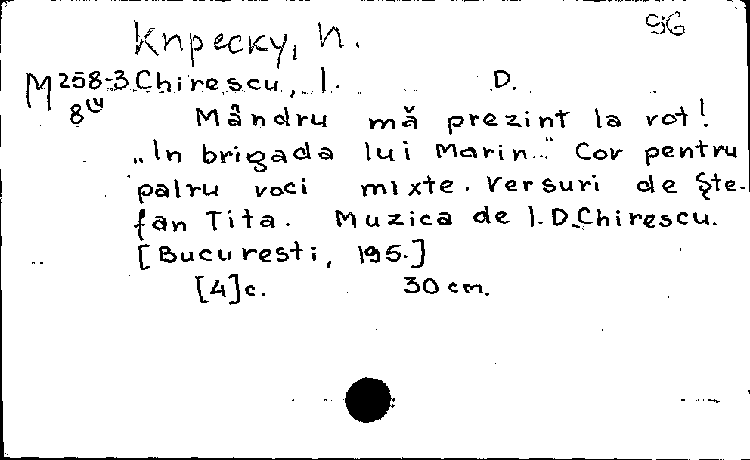 Кирески, И.
96
M 258-3 Chirescu, I. D.
8(4
Mândru mă prezint la vot!
„In brigada lui Marin..." Cor pentru
patru voci mixte. Versuri de Ște-
fan Tita. Muzica de I.D.Chirescu.
[Bucuresti, 195.]
[4]c. 30 cm.